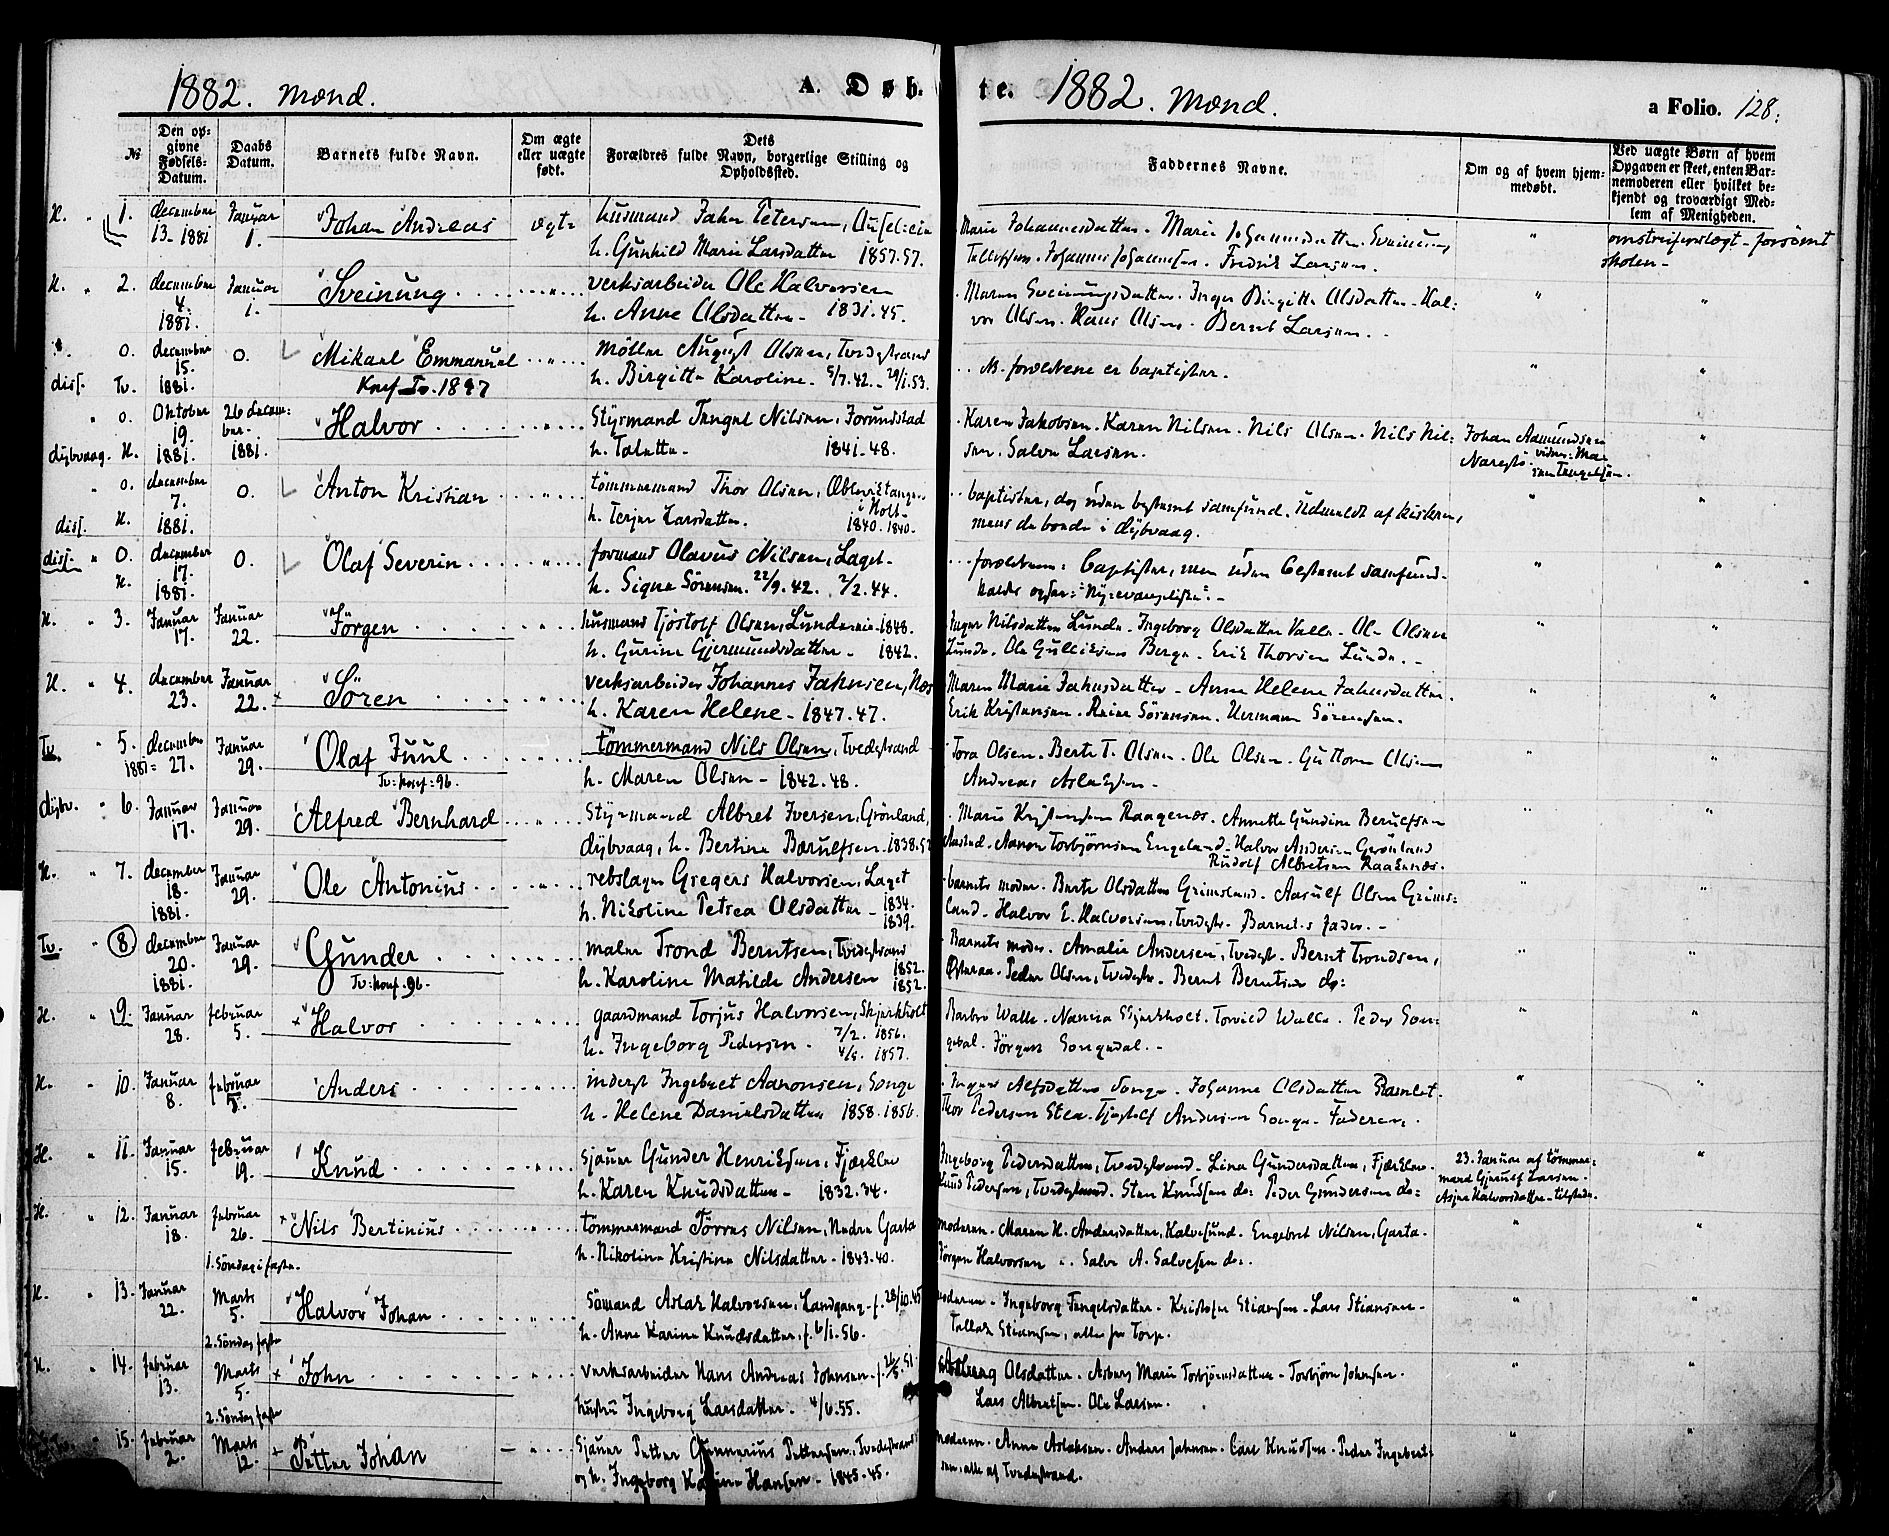 1882. Mænd.
A. Døb-
te.
1882. Mænd.
a Folio. 128.
№
Den op-
givne
Fødsels-
Datum.
Daabs
Datum.
Barnets fulde Navn.
Om ægte
eller uægte
født.
Dets
Forældres fulde Navn, borgerlige Stilling og
Opholdssted.
Faddernes Navne.
Om og af hvem hjem-
medøbt.
Ved uægte Børn af hvem
Opgaven er skeet, enten Bar-
nemoderen eller hvilket be-
kjendt og troværdigt Med-
lem af Menigheden.
H. " 1. december Januar Johan Andreas ægte husmand Jahn Petersen,
13. 1881 1. h. Gunhild Marie Larsdatter 1857.57.
Marie Johannesdatter. Marie Johannesdatter. Sveinung
Tellefsen. Johannes Johannesen. Fredrik Larsen.
" omstreiferslægt - forsømt
skolen -
H. " 2. december Januar Sveinung verksarbeider Ole Halvorsen
4. 1881. 1. h. Anne Olsdatter - 1831.45.
Maren Sveinungsdatter. Inger Birgitte Olsdatter - Hal-
vor Olsen. Hans Olsen. Bernt Larsen.
0. december 0. Mikael Emmanuel Møller August Olsen, Tvedestrand
15.
diss. Tv. 1881. Konf Tv. 1897 h. Birgitte Karoline. 5/7.42. - 29/1.53.
forældrene er baptister.
" 0. Oktober 26 decem- Halvor Styrmand Tengel Nilsen,
19. ber.
dybvaag. H. 1881. 1881. h. Talette - 1841-48.
Karen Jakobsen. Karen Nilsen. Nils Olsen. Nils Nil-
sen. Salve Larsen.
Johan Aamundsen
" 0. december 0. Anton Kristian tømmermand Thor Olsen,
7. i Holt -
diss. H. 1881. h. Terjer Larsdatter. 1840.1840.
baptister, dog uden bestemt samfund. Udmeldt af kirken,
mens de boede i dybvaag.
diss. " 0. december 0. Olaf Severin formand Olavus Nilsen, Laget -
17.
H. 1881. h. Signe Sørensen. 22/9.42. 2/2.44.
forældrene: baptister, men uden bestemt samfund -
kalder
H. " 3. Januar Januar Jørgen husmand Tjøstolf Olsen, 1848.
17. 22. h. Gurine Gjermundsdatter - 1842.
Inger Nilsdatter Lunde. Ingeborg Olsdatter Valle. Ole Olsen
Lunde. Ole Gulliksen Berge. Erik Thorsen Lunde. -
H. " 4. december Januar Søren verksarbeider Johannes Jahnsen, Næs
23. 22. h. Karen Helene - 1847.47.
Maren Marie Jahnsdatter - Anne Helene Jahnsdatter.
Erik Kristensen. Sørensen. Herman Sørensen.
Tv. " 5. december Januar Olaf Juul tømmermand Nils Olsen, Tvedestrand
1881 = 27. 29. Tv: konf: 96. h. Maren Olsen - 1842.48.
Tora Olsen. Berte T. Olsen. Ole Olsen. Guttorm Olsen
Andreas Aslaksen -
dybv. " 6. Januar Januar Alfred Bernhard Styrmand Albret Iversen, Grønland,
17. 29. dybvaag, h. Bertine Berulfsen - 1838.
Marie Raagenæs. Annette Gundine Berulfsen
Aanon Torbjørnsen Engeland. Halvor Andersen Grønland
Rudolf Albretsen Raakenæs.
H. " 7. december Januar Ole Antonius rebslager Gregers Halvorsen, Laget
18. 29. h. Nikoline Petrea Olsdatter - 1834.
1881. 1839.
barnets moder. Berte Olsdatter Grimsland. Aasulf Olsen Grims-
land - Halvor E. Halvorsen, Tvedestr. Barnets fader. -
Tv. " 8. december Januar Gunder maler Trond Berntsen, Tvedestrand
20. 29. 1852.
1881. Tv: konf. 96. h. Karoline Matilde Andersen 1852.
Barnets moder. Amalie Andersen, Tvedest. Bernt Trondsen,
Østeraa. Peder Olsen, Tvedestr. Bernt Berntsen do:
H. " 9. Januar februar Halvor gaardmand Torjus Halvorsen, Skjerkholt
28. 5. h. Ingeborg Pedersen. 7/2. 1856.
4/5. 1857.
Barbro Walle. Skjerkholt. Torvild Walle. Peder Son-
gedal. Jørgen Songedal. -
H. " 10. Januar februar Anders inderst Ingebret Aanonsen, Songe
8. 5. h. Helene Danielsdatter 1858.1856.
Alfsdatter Songe. Johanne Olsdatter Ramlet.
Thor Pedersen Andersen Songe. Faderen.
H. " 11. Januar februar Knud sjauer Gunder Henriksen,
15. 19. h. Karen Knudsdatter - 1832.34.
Ingeborg Pedersdatter, Tvedestrand. Lina Gundersdatter,
Knud Pedersen, Tvedestrand. Sten Knudsen do: Peder Gundersen do:
23. Januar af tømmer-
mand Gjerulf Larsen.
Asjer Halvorsdatter - tilstede.
H. " 12. Januar februar Nils Bertinius tømmermand Tørres Nilsen, Nedre Garta
18. 26. h. Nikoline Kristine Nilsdatter - 1843.40.
1. Søndag i faste.
moderen. Maren H. Andersdatter, Halvesund. Engebret Nilsen, Garta.
Jørgen Halvorsen Salve A. Salvesen do:
H. " 13. Januar Marts Halvor Johan Sømand Aslak Halvorsen, Landgang - f. 28/10.45
22. 5. h. Anne Karine Knudsdatter, f. 6/1.56.
2. Søndag faste
moderen. Ingeborg Tengelsdatter. Kristofer Stiansen - Lars Stiansen -
Tellak Stiansen, alle fra Torp.
H. " 14. februar Marts John verksarbeider Hans Andreas Johnsen - f.
13. 5. hustru Ingeborg Larsdatter. 4/6.55.
2. Søndag faste
Olsdatter. Asberg Marie Torbjørnsdatter - Torbjørn Johnsen.
Lars Albretsen. Ole Larsen.
" 15. februar Marts Petter Johan Sjauer Petter Gunnerius Pettersen, Tvedestrand
2. 12. og h. Ingeborg Hansen - 1845.45.
moderen. Anne Aslaksen. Anders Jahnsen. Carl Knudsen. Peder Ingebret-
sen, alle af Tvedestrand.